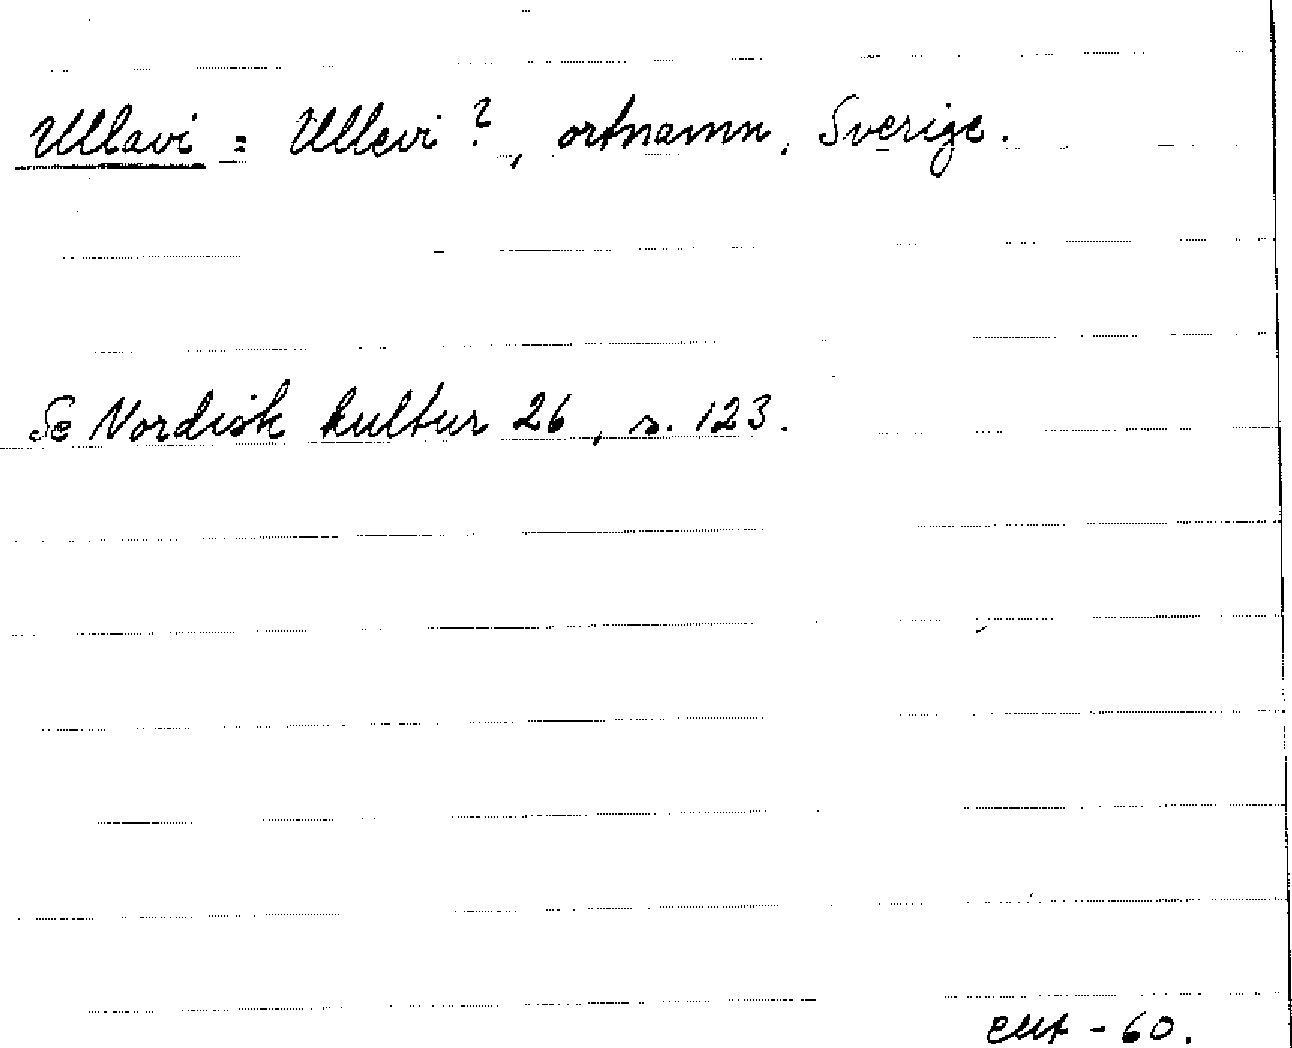 Ullavi = Ullevi?, ortnamn, Sverige.
Se Nordisk kultur 26, s. 123.
- 60.